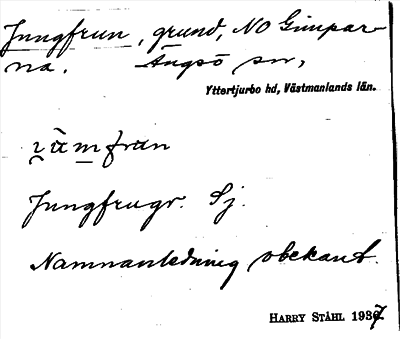 Jungfrun, grund, NO Gimpar-
na. Ängsö sn,
Yttertjurbo hd, Västmanlands län.
Jungfrugr. Sj.
Namnanledning obekant.
HARRY STÅHL 1937